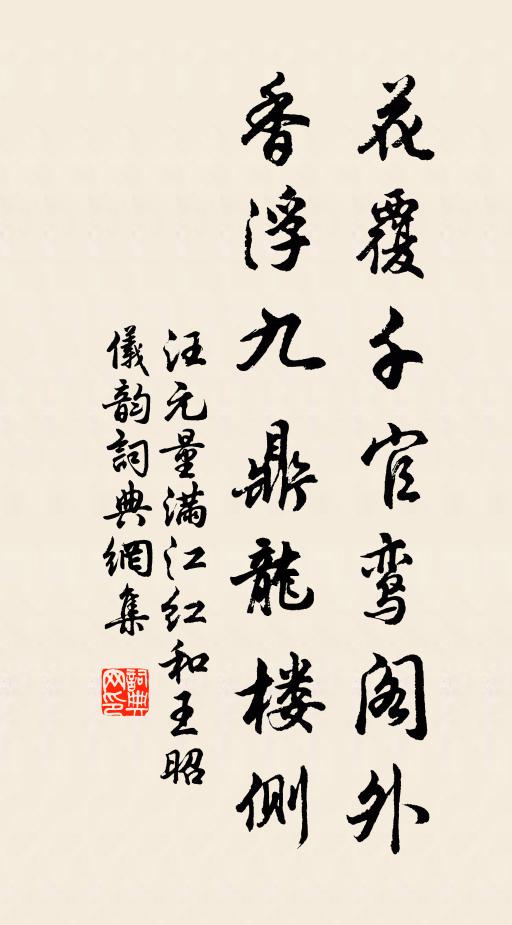 花覆千官鸾阁外
香浮九鼎龍楼側
汪元量满江红和王昭
儀韵詞典網集
詞典网印